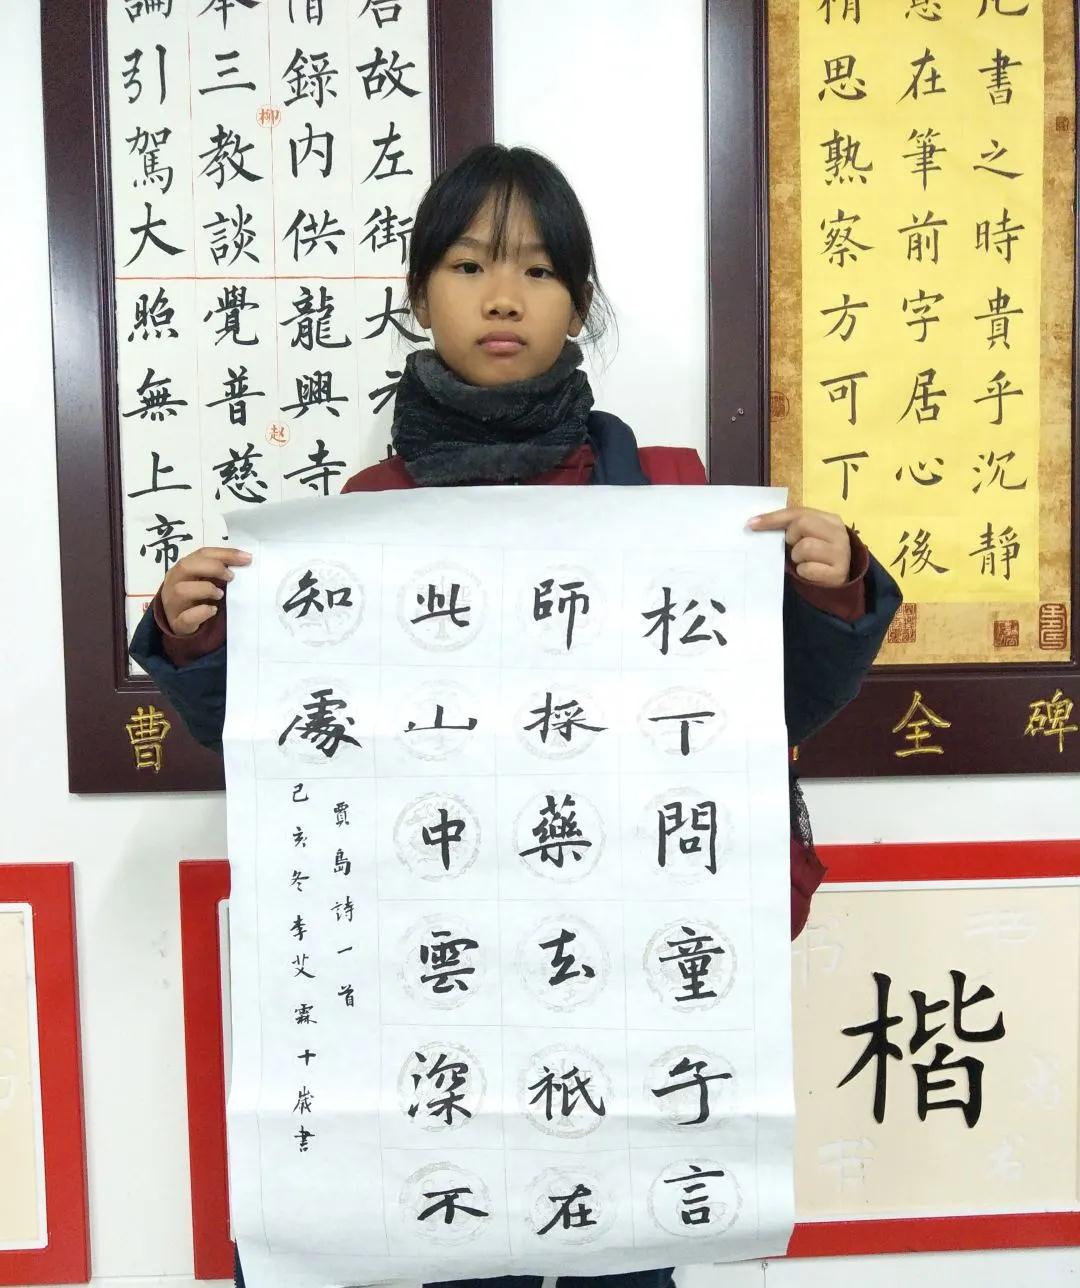 松下問童子言
師採藥去祇在
此山中雲深不
知處
賈島詩一首
己亥冬李艾霖十歲書
故左街
大
錄内供
龍興寺
三教談
覺普慈
引駕大
照無上帝
柳
赵
書之時貴乎沉靜
在筆前字居心後
思熟察方可下
曹
全
碑
楷